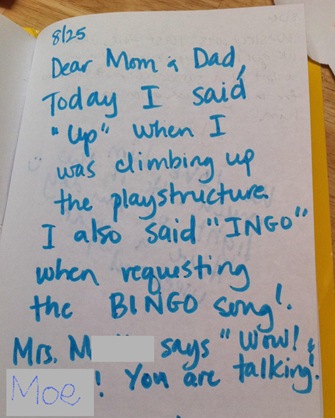 8/25
Dear Mom & Dad,
Today I said
"up" when I
was climbing up
the playstructure.
I also said "INGO"
when requesting
the BINGO song!
Mrs. M says "Wow!
Moe! You are talking!